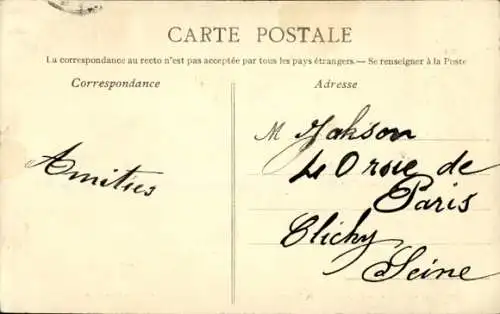 CARTE POSTALE
La correspondance au recto n'est pas acceptée par tous les pays étrangers.— Se renseigner à la Poste
Correspondance
Adresse
Amitiés
M Jakson
40 rue de
Paris
Clichy
Seine